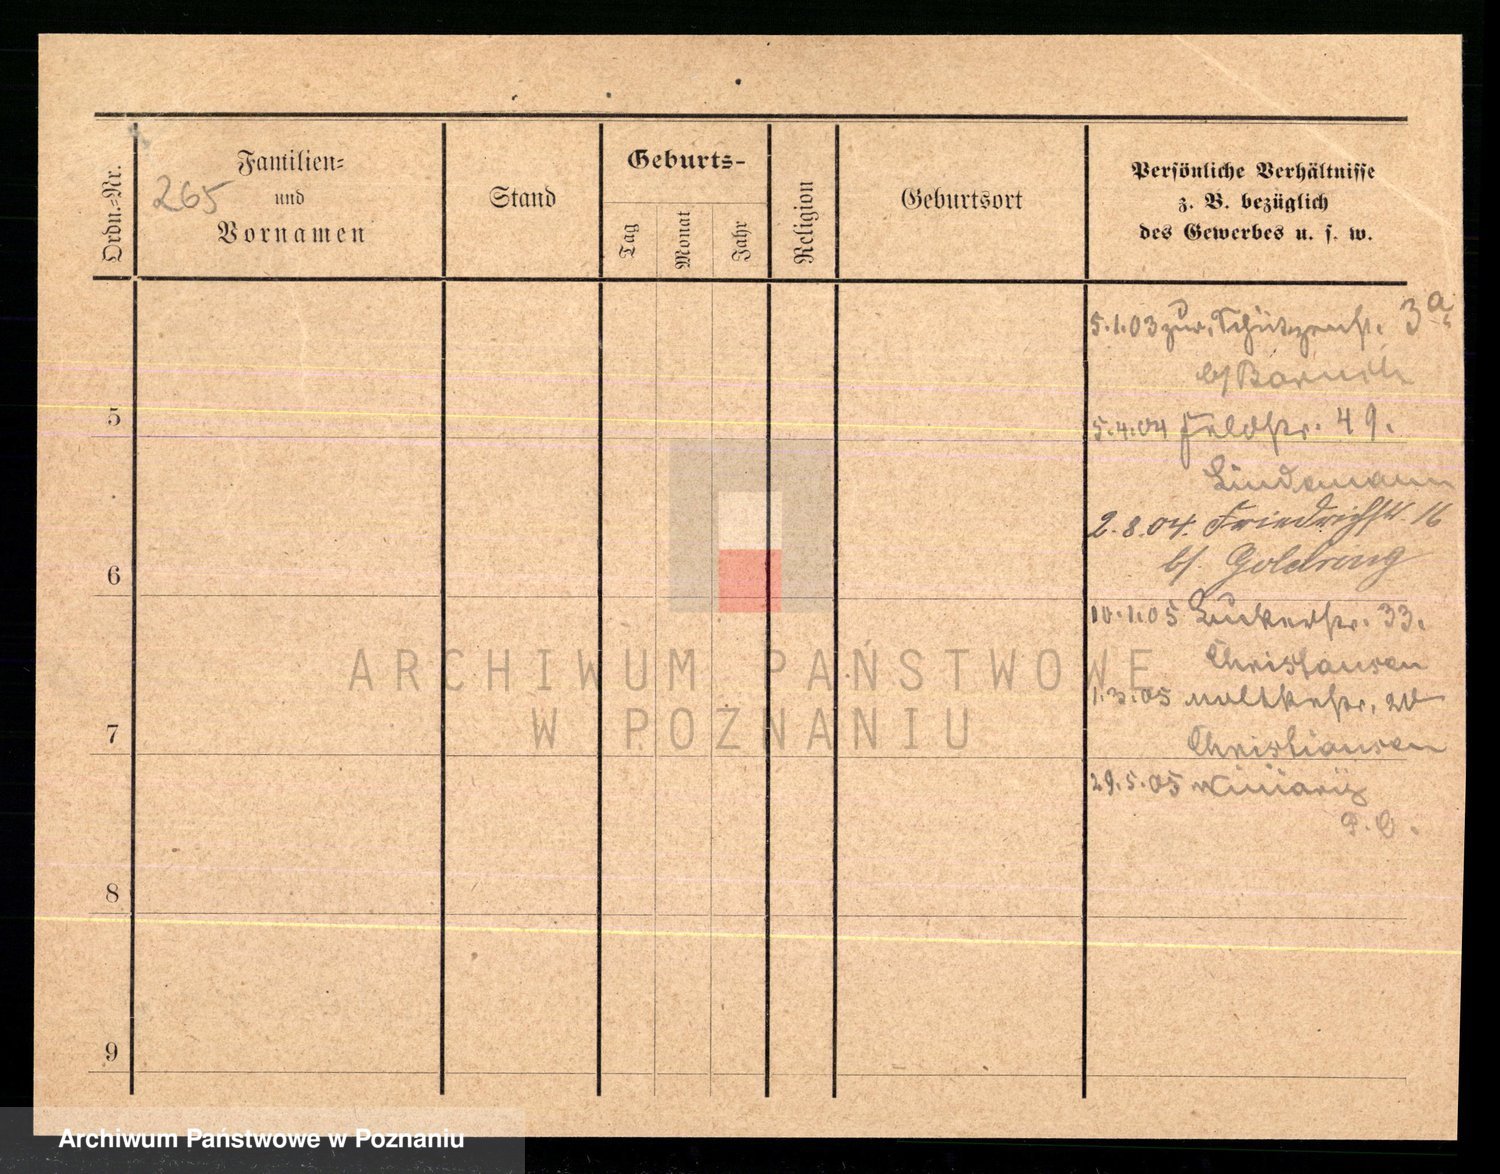 Ordn.-Nr.
Familien-
und
Vornamen
265
Stand
Geburts-
Tag
Monat
Jahr
Religion
Geburtsort
Persönliche Verhältnisse
z. B. bezüglich
des Gewerbes u. s. w.
5.1.03 zur. Schützenstr. 3a
b/
5
5.4.04 Feldstr. 49.
Lindemann
2.8.04. Friedrichstr. 16
b/. Goldring
6
10.1.05 33.
Christiansen
1.3.05 Moltkestr. 20
7
Christiansen
29.5.05
8
9
ARCHIWUM PAŃSTWOWE
W POZNANIU
Archiwum Państwowe w Poznaniu